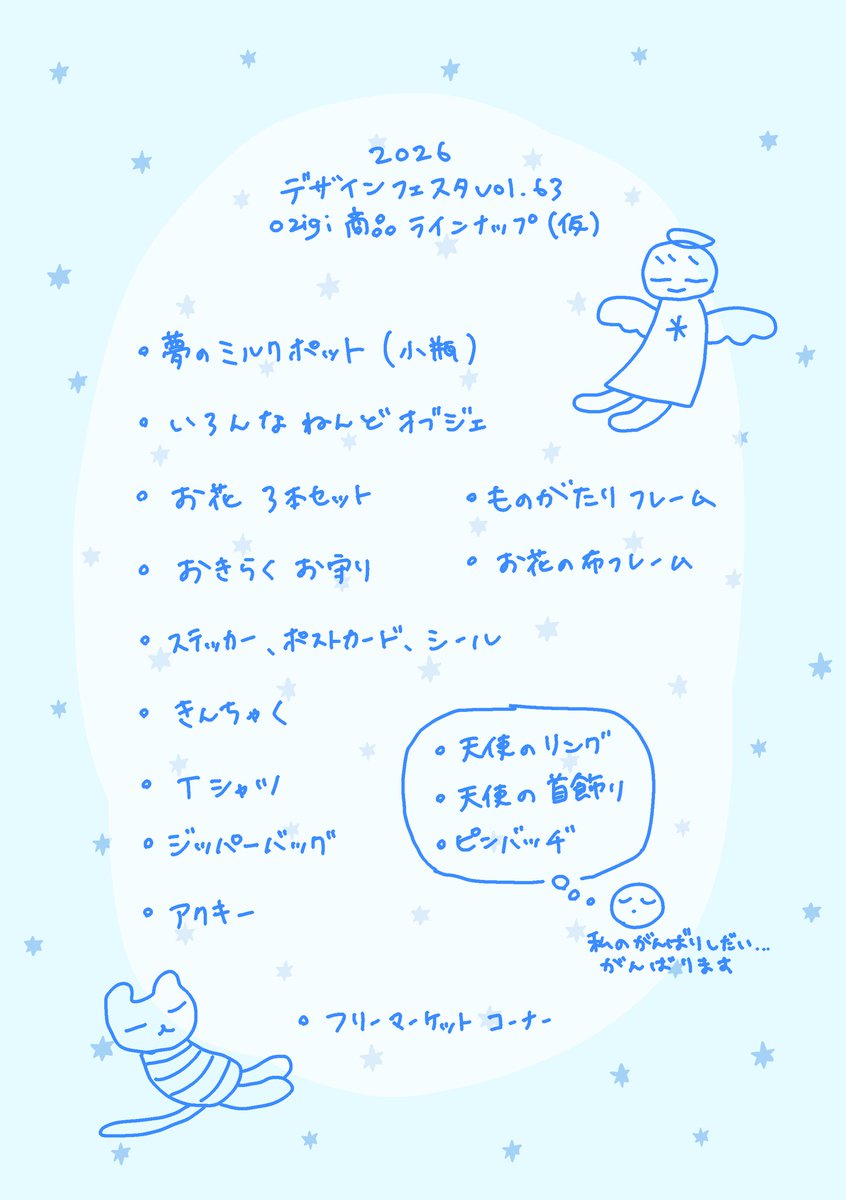 2026
デザインフェスタvol.63
ozigi 商品 ラインナップ(仮)
・夢のミルクポット(小瓶)
・いろんな ねんど オブジェ
・お花 3本セット
・ものがたり フレーム
・おきらく お守り
・お花の布フレーム
・ステッカー、ポストカード、シール
・きんちゃく
・Tシャツ
・ジッパーバッグ
・アクキー
・天使のリング
・天使の首飾り
・ピンバッヂ
私のがんばりしだい...
がんばります
・フリーマーケット コーナー